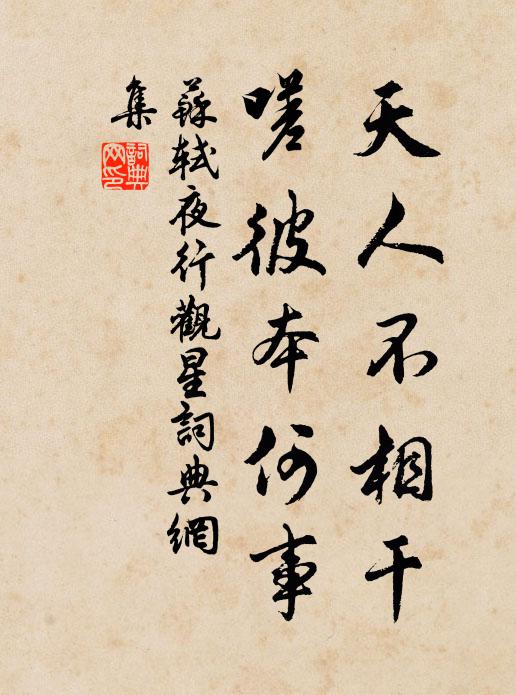 天人不相干
嗟彼本何事
蘇軾夜行觀星詞典網
集
詞典
网印